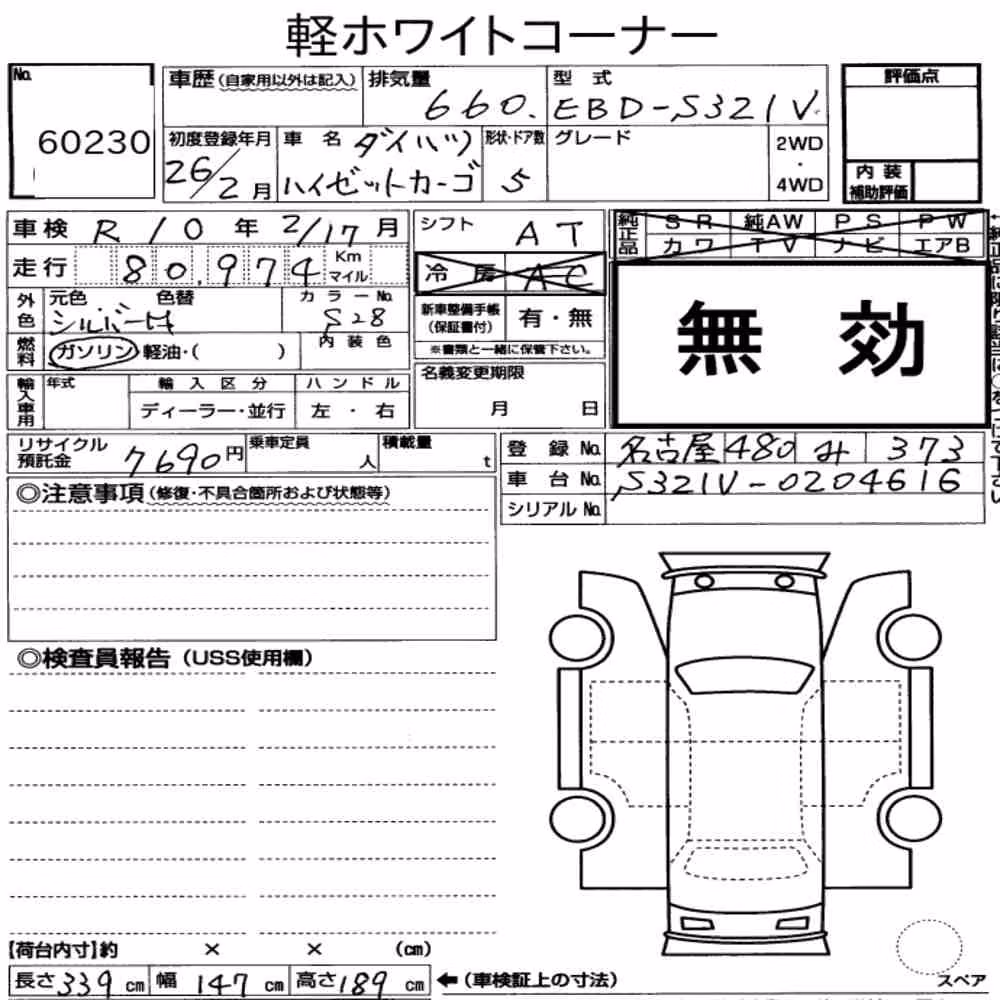 軽ホワイトコーナー
No. 60230
車歴(自家用以外は記入) 排気量 660. 型式 EBD-S321V
評価点
初度登録年月 26/2月 車名 ダイハツ ハイゼットカーゴ 形状・ドア数 5 グレード 2WD・4WD
内装補助評価
車検 R10年2/17月 シフト AT
純正品 SR 純AW PS PW
カワ TV ナビ エアB
走行 80,974 Km マイル 冷房 AC
無効
外色 元色 シルバーM 色替 カラーNo. S28
新車整備手帳(保証書付) 有・無
※書類と一緒に保管下さい。
燃料 ガソリン・軽油・( ) 内装色
名義変更期限 月 日
輸入車用 年式 輸入区分 ハンドル
ディーラー・並行 左・右
リサイクル預託金 7690円 乗車定員 人 積載量 t
登録No. 名古屋 480 み 373
車台No. S321V-0204616
シリアルNo.
◎注意事項(修復・不具合箇所および状態等)
◎検査員報告(USS使用欄)
【荷台内寸】約 × × (cm)
長さ339cm 幅147cm 高さ189cm ←(車検証上の寸法)
スペア